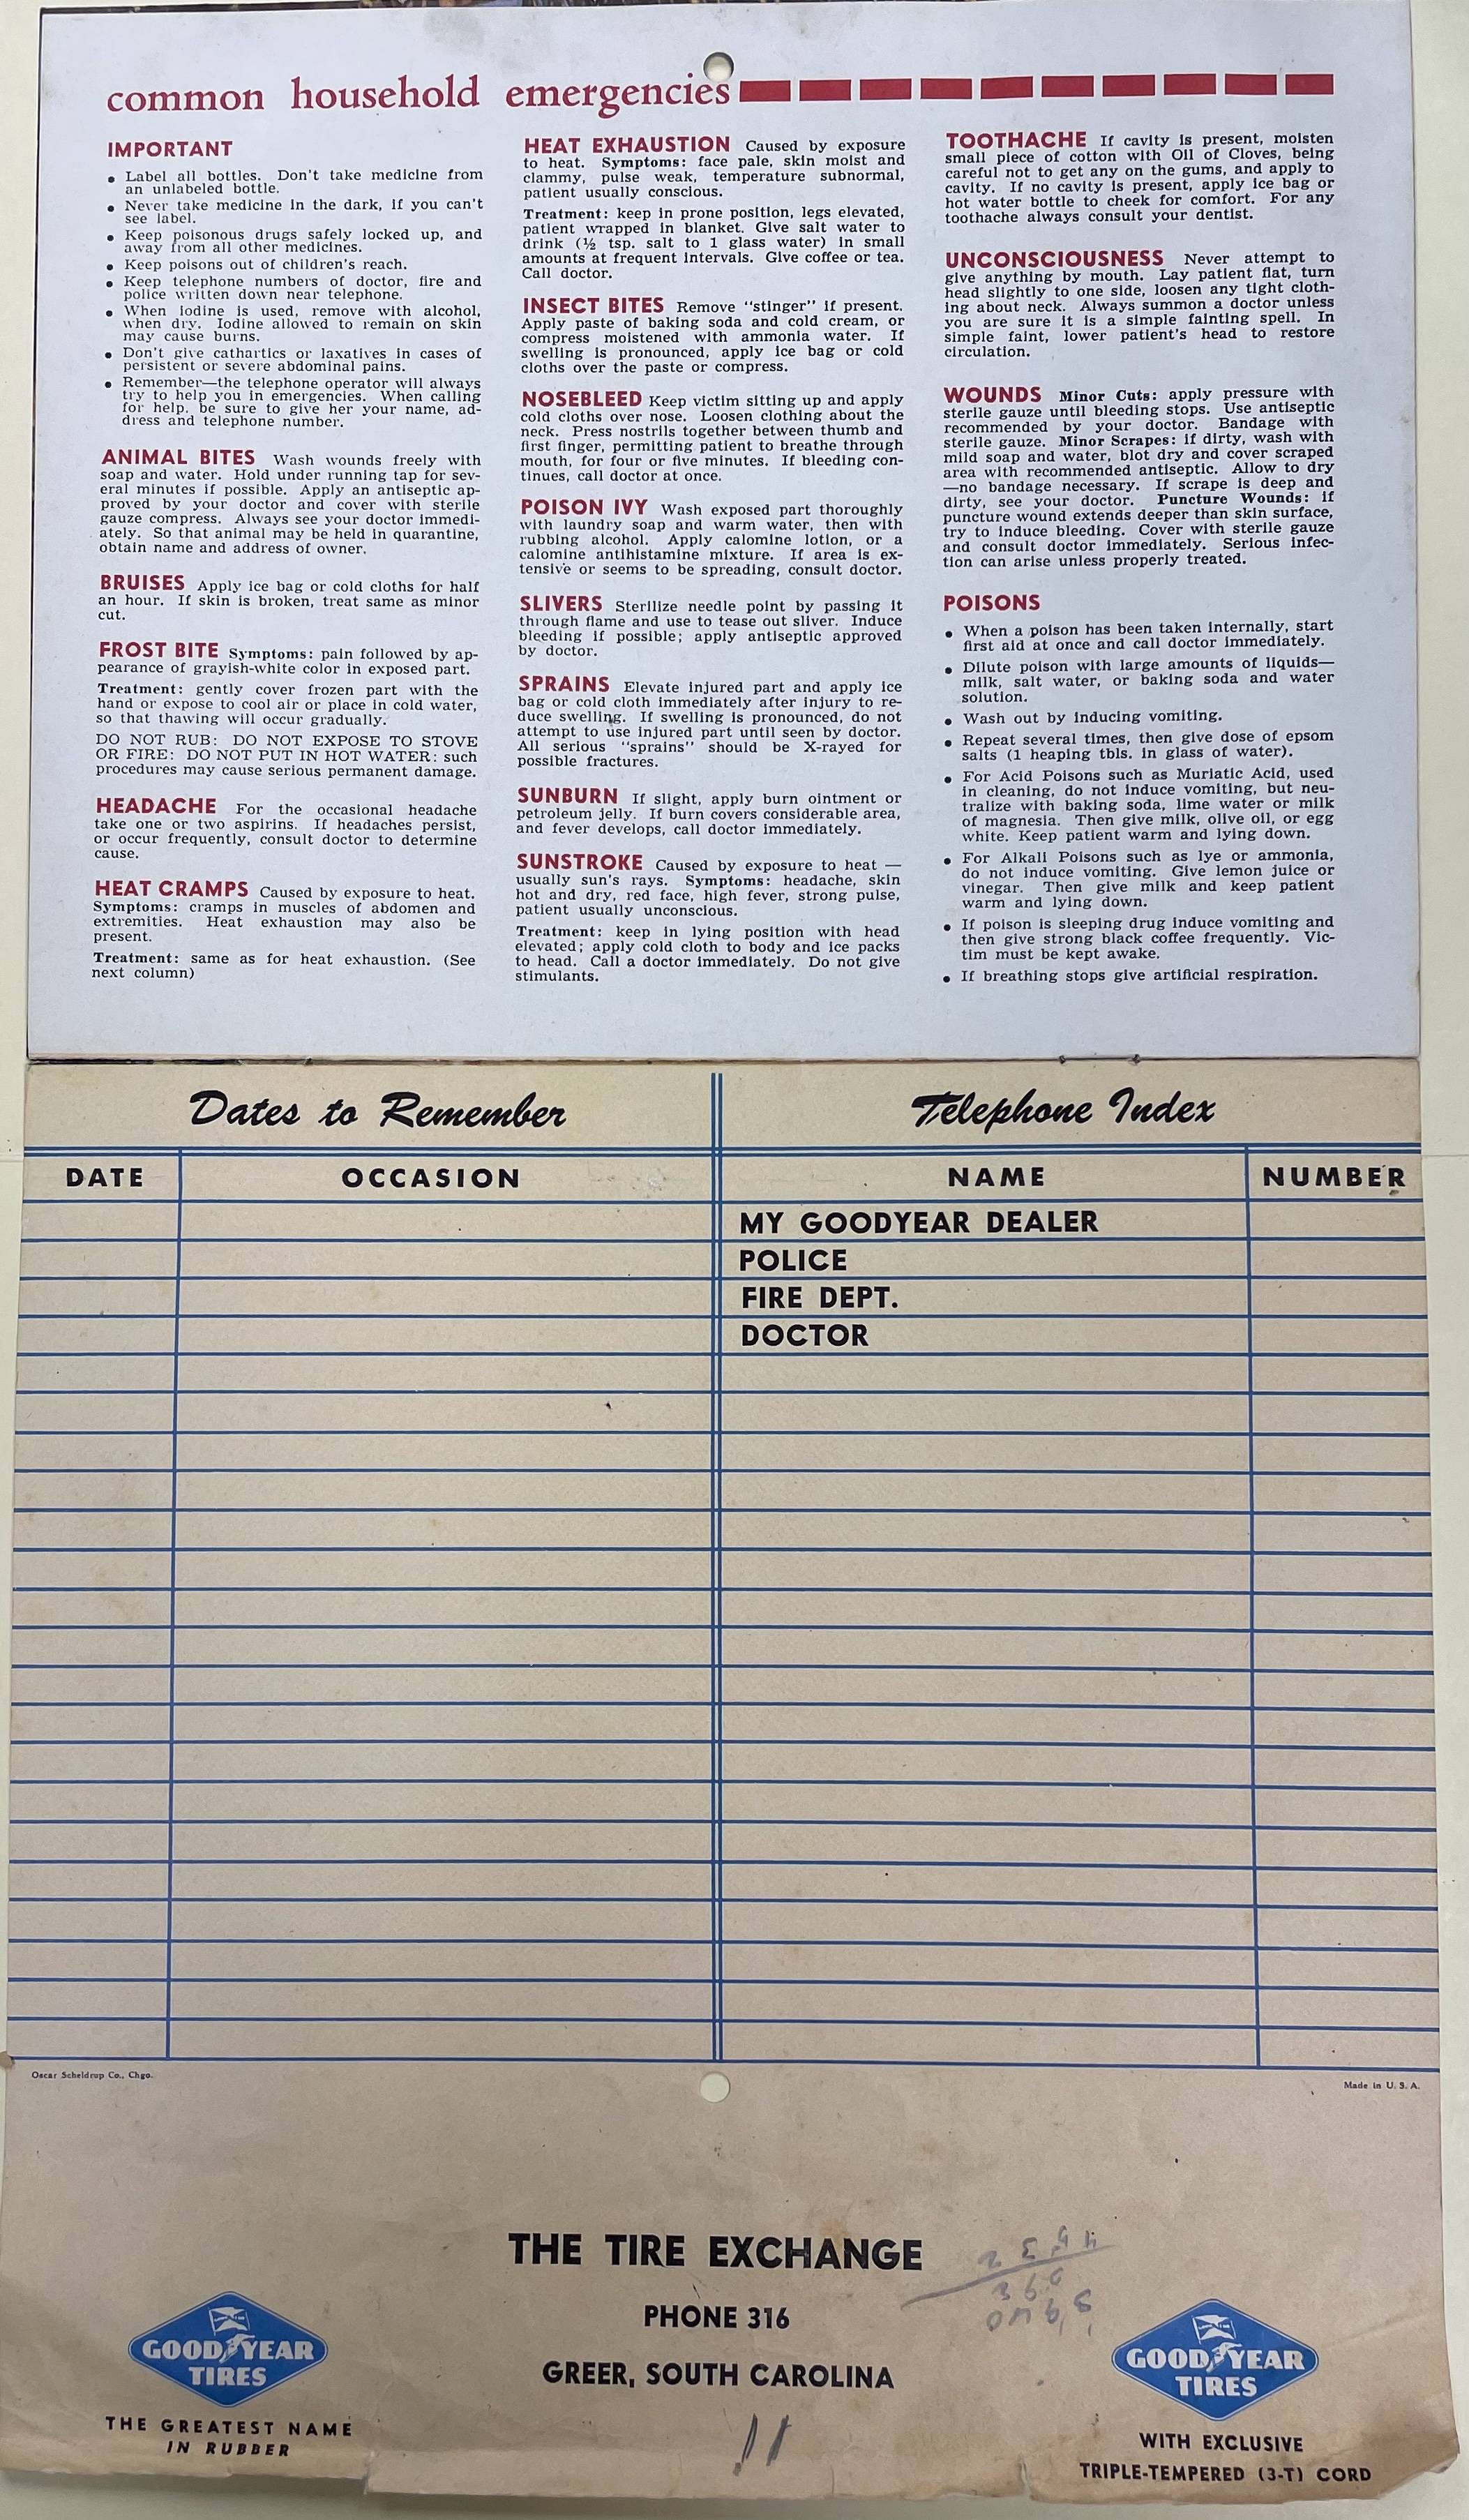 common household emergencies
IMPORTANT
• Label all bottles. Don't take medicine from
an unlabeled bottle.
• Never take medicine in the dark, if you can't
see label.
• Keep poisonous drugs safely locked up, and
away from all other medicines.
• Keep poisons out of children's reach.
• Keep telephone numbers of doctor, fire and
police written down near telephone.
• When iodine is used, remove with alcohol,
when dry. Iodine allowed to remain on skin
may cause burns.
• Don't give cathartics or laxatives in cases of
persistent or severe abdominal pains.
• Remember—the telephone operator will always
try to help you in emergencies. When calling
for help, be sure to give her your name, ad-
dress and telephone number.
ANIMAL BITES Wash wounds freely with
soap and water. Hold under running tap for sev-
eral minutes if possible. Apply an antiseptic ap-
proved by your doctor and cover with sterile
gauze compress. Always see your doctor immedi-
ately. So that animal may be held in quarantine,
obtain name and address of owner.
BRUISES Apply ice bag or cold cloths for half
an hour. If skin is broken, treat same as minor
cut.
FROST BITE Symptoms: pain followed by ap-
pearance of grayish-white color in exposed part.
Treatment: gently cover frozen part with the
hand or expose to cool air or place in cold water,
so that thawing will occur gradually.
DO NOT RUB: DO NOT EXPOSE TO STOVE
OR FIRE: DO NOT PUT IN HOT WATER: such
procedures may cause serious permanent damage.
HEADACHE For the occasional headache
take one or two aspirins. If headaches persist,
or occur frequently, consult doctor to determine
cause.
HEAT CRAMPS Caused by exposure to heat.
Symptoms: cramps in muscles of abdomen and
extremities. Heat exhaustion may also be
present.
Treatment: same as for heat exhaustion. (See
next column)
HEAT EXHAUSTION Caused by exposure
to heat. Symptoms: face pale, skin moist and
clammy, pulse weak, temperature subnormal,
patient usually conscious.
Treatment: keep in prone position, legs elevated,
patient wrapped in blanket. Give salt water to
drink (½ tsp. salt to 1 glass water) in small
amounts at frequent intervals. Give coffee or tea.
Call doctor.
INSECT BITES Remove "stinger" if present.
Apply paste of baking soda and cold cream, or
compress moistened with ammonia water. If
swelling is pronounced, apply ice bag or cold
cloths over the paste or compress.
NOSEBLEED Keep victim sitting up and apply
cold cloths over nose. Loosen clothing about the
neck. Press nostrils together between thumb and
first finger, permitting patient to breathe through
mouth, for four or five minutes. If bleeding con-
tinues, call doctor at once.
POISON IVY Wash exposed part thoroughly
with laundry soap and warm water, then with
rubbing alcohol. Apply calomine lotion, or a
calomine antihistamine mixture. If area is ex-
tensive or seems to be spreading, consult doctor.
SLIVERS Sterilize needle point by passing it
through flame and use to tease out sliver. Induce
bleeding if possible; apply antiseptic approved
by doctor.
SPRAINS Elevate injured part and apply ice
bag or cold cloth immediately after injury to re-
duce swelling. If swelling is pronounced, do not
attempt to use injured part until seen by doctor.
All serious "sprains" should be X-rayed for
possible fractures.
SUNBURN If slight, apply burn ointment or
petroleum jelly. If burn covers considerable area,
and fever develops, call doctor immediately.
SUNSTROKE Caused by exposure to heat —
usually sun's rays. Symptoms: headache, skin
hot and dry, red face, high fever, strong pulse,
patient usually unconscious.
Treatment: keep in lying position with head
elevated; apply cold cloth to body and ice packs
to head. Call a doctor immediately. Do not give
stimulants.
TOOTHACHE If cavity is present, moisten
small piece of cotton with Oil of Cloves, being
careful not to get any on the gums, and apply to
cavity. If no cavity is present, apply ice bag or
hot water bottle to cheek for comfort. For any
toothache always consult your dentist.
UNCONSCIOUSNESS Never attempt to
give anything by mouth. Lay patient flat, turn
head slightly to one side, loosen any tight cloth-
ing about neck. Always summon a doctor unless
you are sure it is a simple fainting spell. In
simple faint, lower patient's head to restore
circulation.
WOUNDS Minor Cuts: apply pressure with
sterile gauze until bleeding stops. Use antiseptic
recommended by your doctor. Bandage with
sterile gauze. Minor Scrapes: if dirty, wash with
mild soap and water, blot dry and cover scraped
area with recommended antiseptic. Allow to dry
—no bandage necessary. If scrape is deep and
dirty, see your doctor. Puncture Wounds: if
puncture wound extends deeper than skin surface,
try to induce bleeding. Cover with sterile gauze
and consult doctor immediately. Serious infec-
tion can arise unless properly treated.
POISONS
• When a poison has been taken internally, start
first aid at once and call doctor immediately.
• Dilute poison with large amounts of liquids—
milk, salt water, or baking soda and water
solution.
• Wash out by inducing vomiting.
• Repeat several times, then give dose of epsom
salts (1 heaping tbls. in glass of water).
• For Acid Poisons such as Muriatic Acid, used
in cleaning, do not induce vomiting, but neu-
tralize with baking soda, lime water or milk
of magnesia. Then give milk, olive oil, or egg
white. Keep patient warm and lying down.
• For Alkali Poisons such as lye or ammonia,
do not induce vomiting. Give lemon juice or
vinegar. Then give milk and keep patient
warm and lying down.
• If poison is sleeping drug induce vomiting and
then give strong black coffee frequently. Vic-
tim must be kept awake.
• If breathing stops give artificial respiration.
Dates to Remember
Telephone Index
DATE OCCASION NAME NUMBER
MY GOODYEAR DEALER
POLICE
FIRE DEPT.
DOCTOR
Oscar Scheldrup Co., Chgo.
Made in U. S. A.
THE TIRE EXCHANGE
PHONE 316
GREER, SOUTH CAROLINA
GOODYEAR
TIRES
THE GREATEST NAME
IN RUBBER
GOODYEAR
TIRES
WITH EXCLUSIVE
TRIPLE-TEMPERED (3-T) CORD